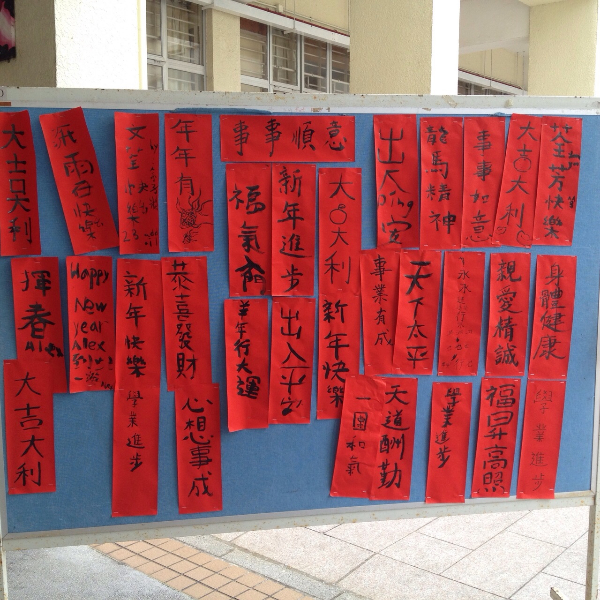 事事順意
年年有
出入ping安
龍馬精神
事事如意
大吉大利
芳快樂
福氣
新年進步
大吉大利
揮春
Happy
New
year
Alex
新年快樂
恭喜發財
羊年行大運
出入平安
新年快樂
事業有成
天下太平
親愛精誠
身體健康
大吉大利
學業進步
心想事成
一團和氣
天道酬勤
學業進步
福星高照
學業進步